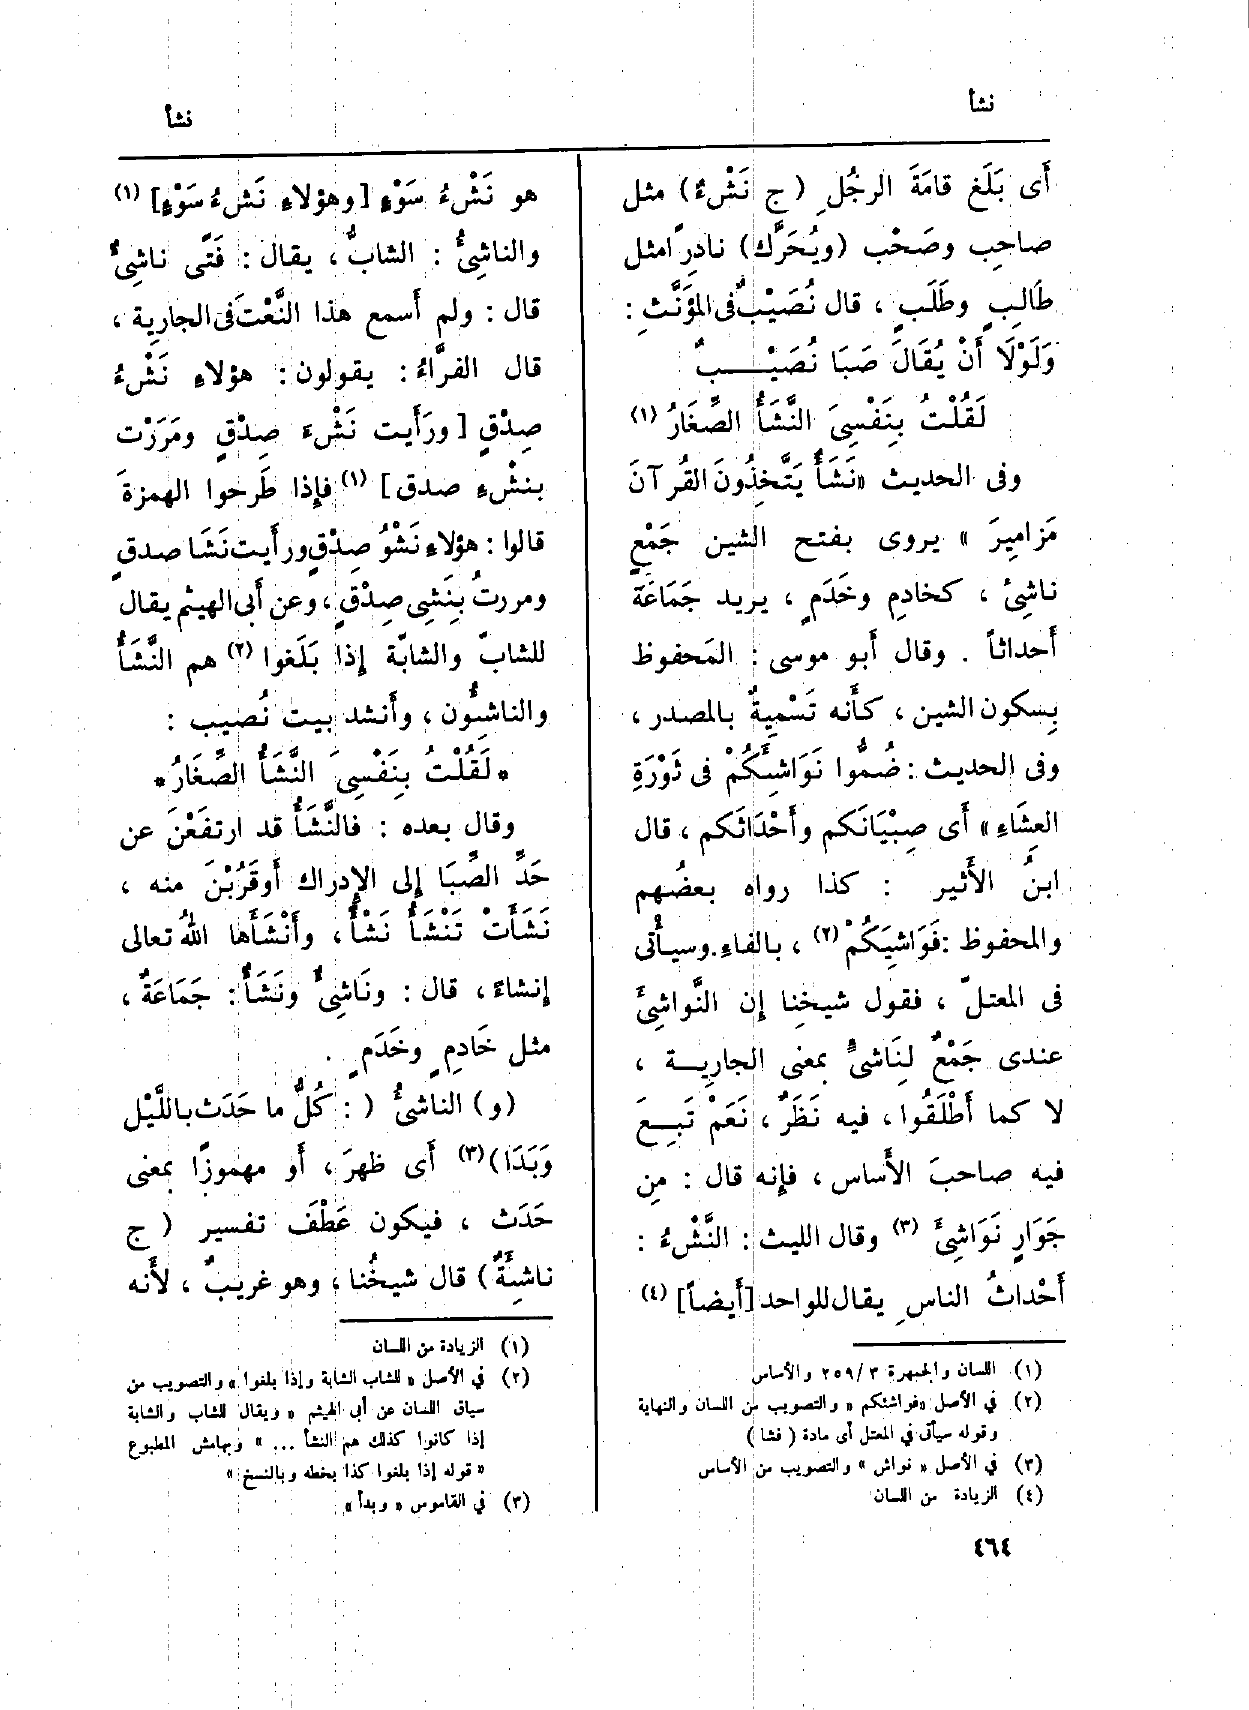 نشأ
نشأ
أى بَلَغ قامَةَ الرجُلِ (ج نَشْءٌ) مثل
صاحِب وصَحْب (ويُحَرَّك) نادِرًا مثل
طَالِبٍ وطَلَبٍ ، قال نُصَيْبٌ فى المؤَنَّثِ :
وَلَوْلَا أَنْ يُقَالَ صَبَا نُصَيْـــبٌ
لَقُلْتُ بِنَفْسِىَ النَّشَأُ الصِّغَارُ (١)
وفى الحديث «نَشَأٌ يَتَّخِذُونَ القُرآنَ
مَزامِيرَ » يروى بفتح الشين جَمْعِ
ناشِئ ، كخادِمٍ وخَدَمٍ ، يريد جَمَاعَة
أحداثاً . وقال أبو موسى : المَحفوظ
بِسكون الشين ، كأَنه تَسْمِيةٌ بالمصدر ،
وفى الحديث : ضُمُّوا نَوَاشِئَكُمْ فى ثَوْرَةِ
العِشَاءِ» أى صِبْيَانَكم وأَحْدَاثَكم ، قال
ابنُ الأَثير : كذا رواه بعضُهم
والمحفوظ : فَوَاشِيَكُمْ (٢) ، بالفاءِ. وسيأتى
فى المعتلّ ، فقول شيخِنا إن النَّواشِئَ
عندى جَمْعٌ لِنَاشِئٍ بمعنى الجارِيـــة ،
لا كما أَطْلَقُوا ، فيه نَظَرٌ ، نَعَمْ تَبِـــعَ
فيه صاحبَ الأَساس ، فإنه قال : مِن
جَوَارٍ نَوَاشِئَ (٣) وقال الليث : النَّشْءُ :
أَحْداثُ الناسِ يقال للواحد [أَيضاً] (٤)
(١) اللسان والجمهرة ٢٥٩/٣ والأساس
(٢) في الأصل «فواشئكم» والتصويب من اللسان والنهاية
وقوله سيأتى في المعتل أى مادة ( فشا )
(٣) في الأصل « نواش » والتصويب من الأساس
(٤) الزيادة من اللسان
٤٦٤
هو نَشْءُ سَوْءٍ [وهؤلاءِ نَشْءُ سَوْءٍ] (١)
والناشِئُ : الشابُّ ، يقال : فَتًى ناشِئٌ
قال : ولم أسمع هذا النَّعْتَ فى الجارية ،
قال الفرَّاءُ : يقولون : هؤلاءِ نَشْءُ
صِدْقٍ [ورَأَيت نَشْءَ صِدْقٍ ومَرَرْت
بنشْءِ صدق] (١) فإِذا طَرحوا الهمزةَ
قالوا : هؤلاءِ نَشْوُ صِدْقٍ ورأيت نَشَا صدقٍ
ومررتُ بِنَشِى صِدْقٍ ، وعن أبى الهيثم يقال
للشابّ والشابَّة إذا بَلَغوا (٢) هم النَّشَأُ
والناشِئُون ، وأنشد بيت نُصيب :
* لَقُلْتُ بِنَفْسِىَ النَّشَأُ الصِّغَارُ *
وقال بعده : فالنَّشَأُ قد ارتفَعْنَ عن
حَدِّ الصِّبَا إلى الإدراك أَوقَرُبْنَ منه ،
نَشَأَتْ تَنْشَأُ نَشْأً ، وأَنْشَأَها اللهُ تعالى
إنشاءً ، قال : ونَاشِئٌ ونَشَأٌ : جَمَاعَةٌ ،
مثل خَادِمٍ وخَدَمٍ .
(و) الناشئُ ( : كُلُّ ما حَدَث باللَّيْل
وَبَدَا) (٣) أى ظهرَ ، أو مهموزًا بمعنى
حَدَث ، فيكون عَطْفَ تفسير ( ج
ناشِئَةٌ) قال شيخُنا ، وهو غريبٌ ، لأَنه
(١) الزيادة من اللسان
(٢) في الأصل « للشاب الشابة وإذا بلغوا » والتصويب من
سياق اللسان عن أبى الهيثم « ويقال للشاب والشابة
إذا كانوا كذلك هم النشأ ... » وبهامش المطبوع
« قوله إذا بلغوا كذا بخطه وبالنسخ »
(٣) في القاموس « وبدأ »